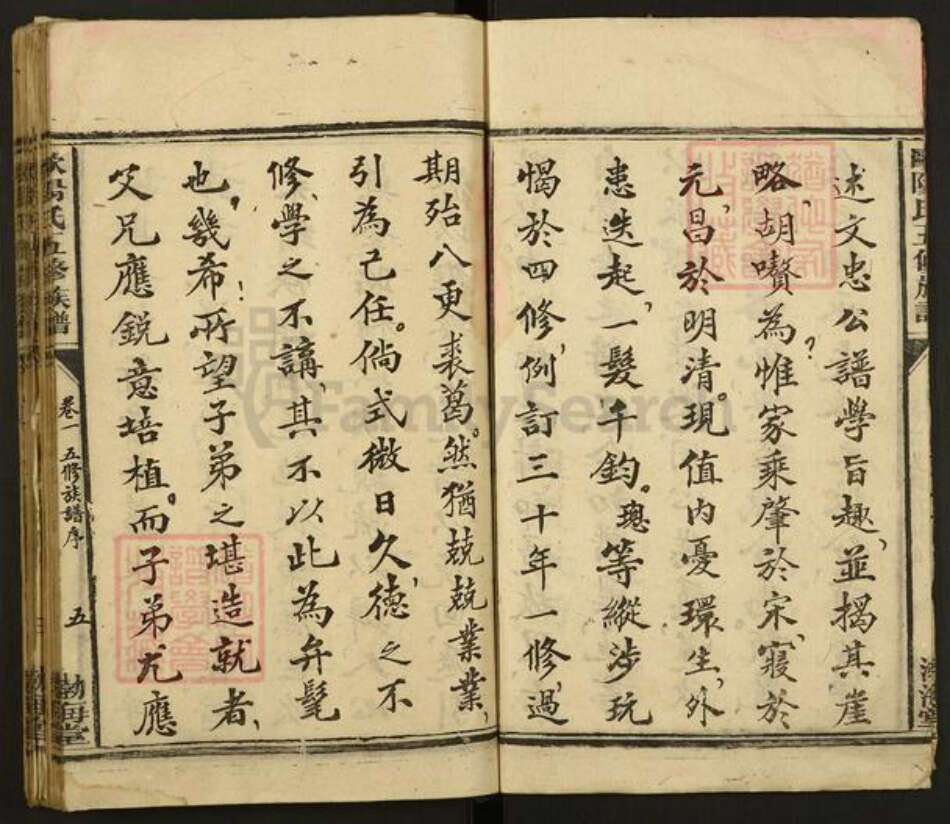 述文忠公譜學旨趣、並揭其崖
略、胡嚽為？惟家乘肇於宋、寢於
元、昌於明清。現值內憂環生、外
患迭起、一髮千鈞。璁等縱涉玩
愒於四修、例訂三十年一修、過
期殆八更裘葛。然猶兢兢業業、
引為己任。倘式微日久、德之不
修、學之不講、其不以此為弁髦
也、幾希！所望子弟之堪造就者、
父兄應銳意培植。而子弟尤應
歐陽氏五修族譜
卷一 五修族譜序 五
勃海堂
FamilySearch